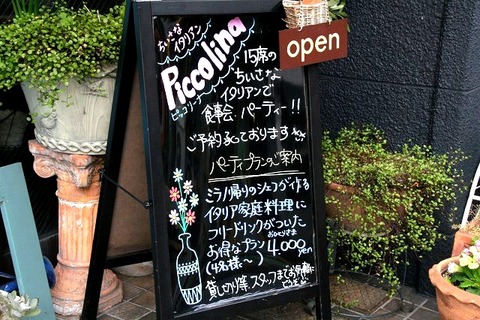 open
ちいさな
イタリアン
Piccolina
ピッコリーナ
15席の
ちいさな
イタリアンで
食事会・パーティー!!
ご予約承っております
パーティプランのご案内
ミラノ帰りのシェフが作る
イタリア家庭料理に
フリードリンクがついた
おひとりさま
お得なプラン 4,000 yen
(4名様〜)
貸し切り等、スタッフまでお気軽に